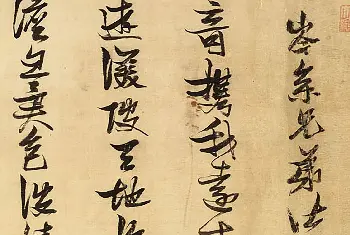 岑參兄弟皆
奇攜我遠來
遊渼陂天地
忽異色波濤